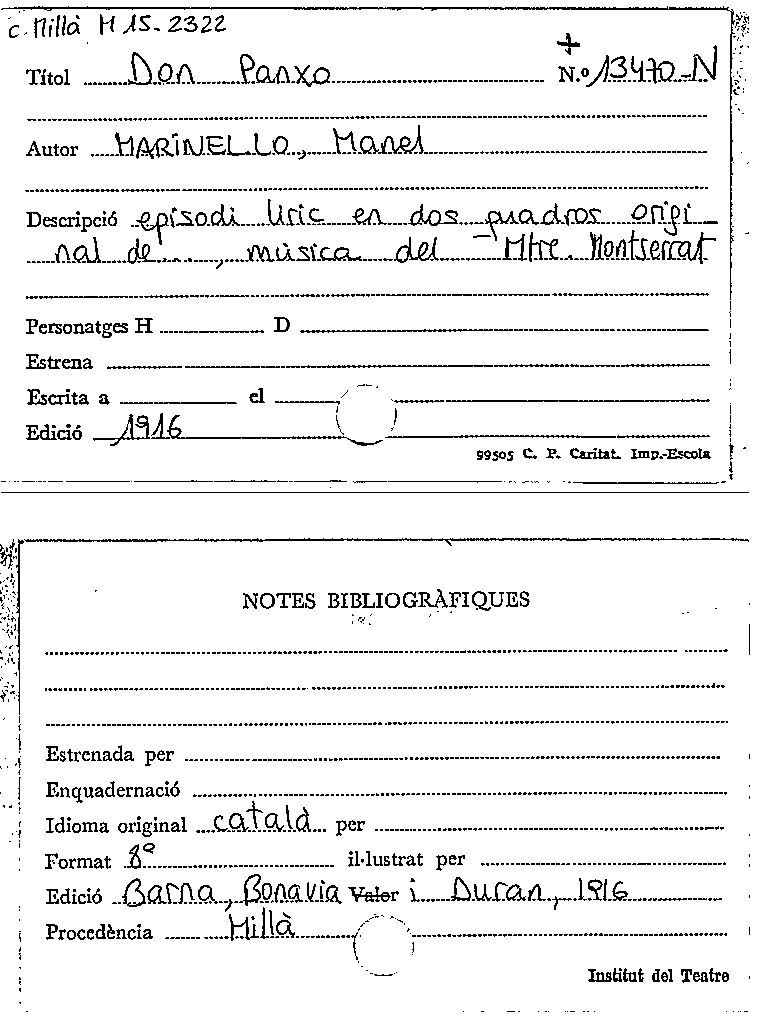 c. Millà M 15-2322
Títol Don Panxo N.º 13470-N
Autor MARINELLO, Manel
Descripció episodi líric en dos quadros origi
nal de ..., música del Mtre. Montserrat
Personatges H D
Estrena
Escrita a el
Edició 1916
99505 C. P. Caritat. Imp.-Escola
NOTES BIBLIOGRÀFIQUES
Estrenada per
Enquadernació
Idioma original català per
Format 8º il·lustrat per
Edició Barna, Bonavia Valor i Duran, 1916
Procedència Millà
Institut del Teatre